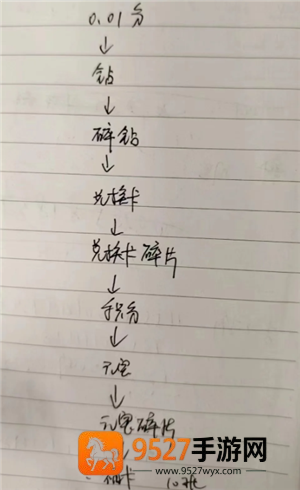 0.01分
↓
钻
↓
碎钻
↓
兑换卡
↓
兑换卡碎片
↓
积分
↓
元宝
↓
元宝碎片
↓
9527手游网
www.9527wyx.com